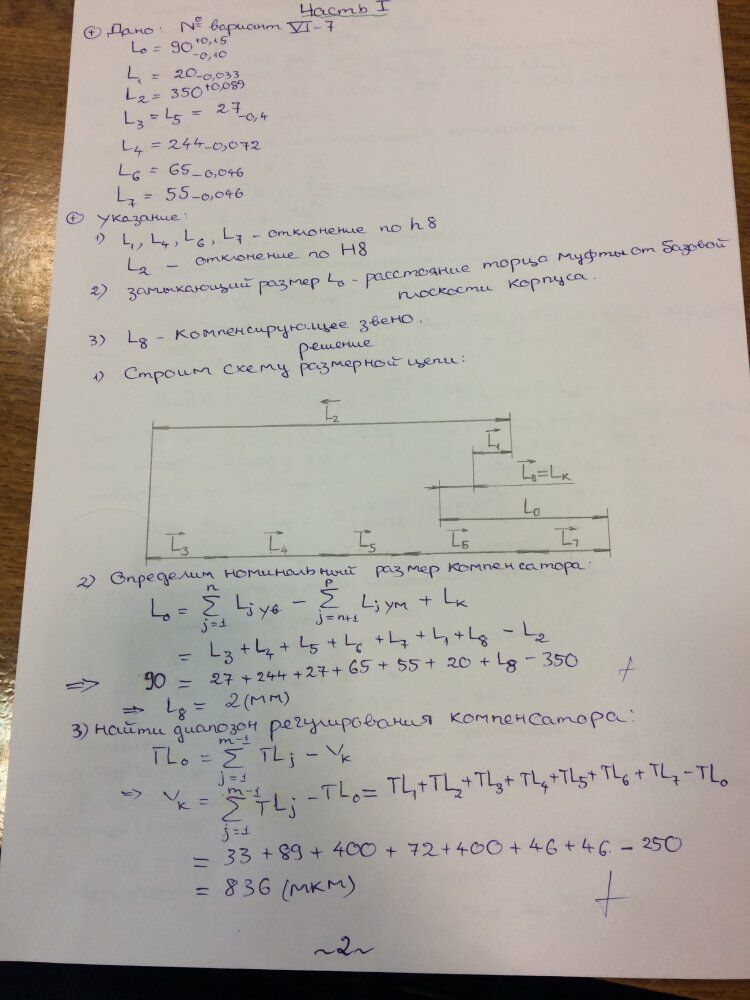 Часть I
⊕ Дано: № вариант VI-7
L₀ = 90 +0,15 -0,10
L₁ = 20-0,033
L₂ = 350+0,089
L₃ = L₅ = 27-0,4
L₄ = 244-0,072
L₆ = 65-0,046
L₇ = 55-0,046
⊕ Указание:
1) L₁, L₄, L₆, L₇ - отклонение по h8
L₂ - отклонение по H8
2) замыкающий размер L₀ - расстояние торца муфты от базовой
плоскости корпуса.
3) L₈ - компенсирующее звено.
решение
1) Строим схему размерной цепи:
L₂
L₁
L₈=Lк
L₀
L₃ L₄ L₅ L₆ L₇
2) Определим номинальный размер компенсатора:
L₀ = n Σ j=1 Lj ув - p Σ j=n+1 Lj ум + Lк
= L₃ + L₄ + L₅ + L₆ + L₇ + L₁ + L₈ - L₂
=> 90 = 27 + 244 + 27 + 65 + 55 + 20 + L₈ - 350 +
=> L₈ = 2 (мм)
3) найти диапозон регулирования компенсатора:
TL₀ = m-1 Σ j=1 TLj - Vк
=> Vк = m-1 Σ j=1 TLj - TL₀ = TL₁+TL₂+TL₃+TL₄+TL₅+TL₆+TL₇-TL₀
= 33 + 89 + 400 + 72 + 400 + 46 + 46 - 250
= 836 (мкм) +
~2~